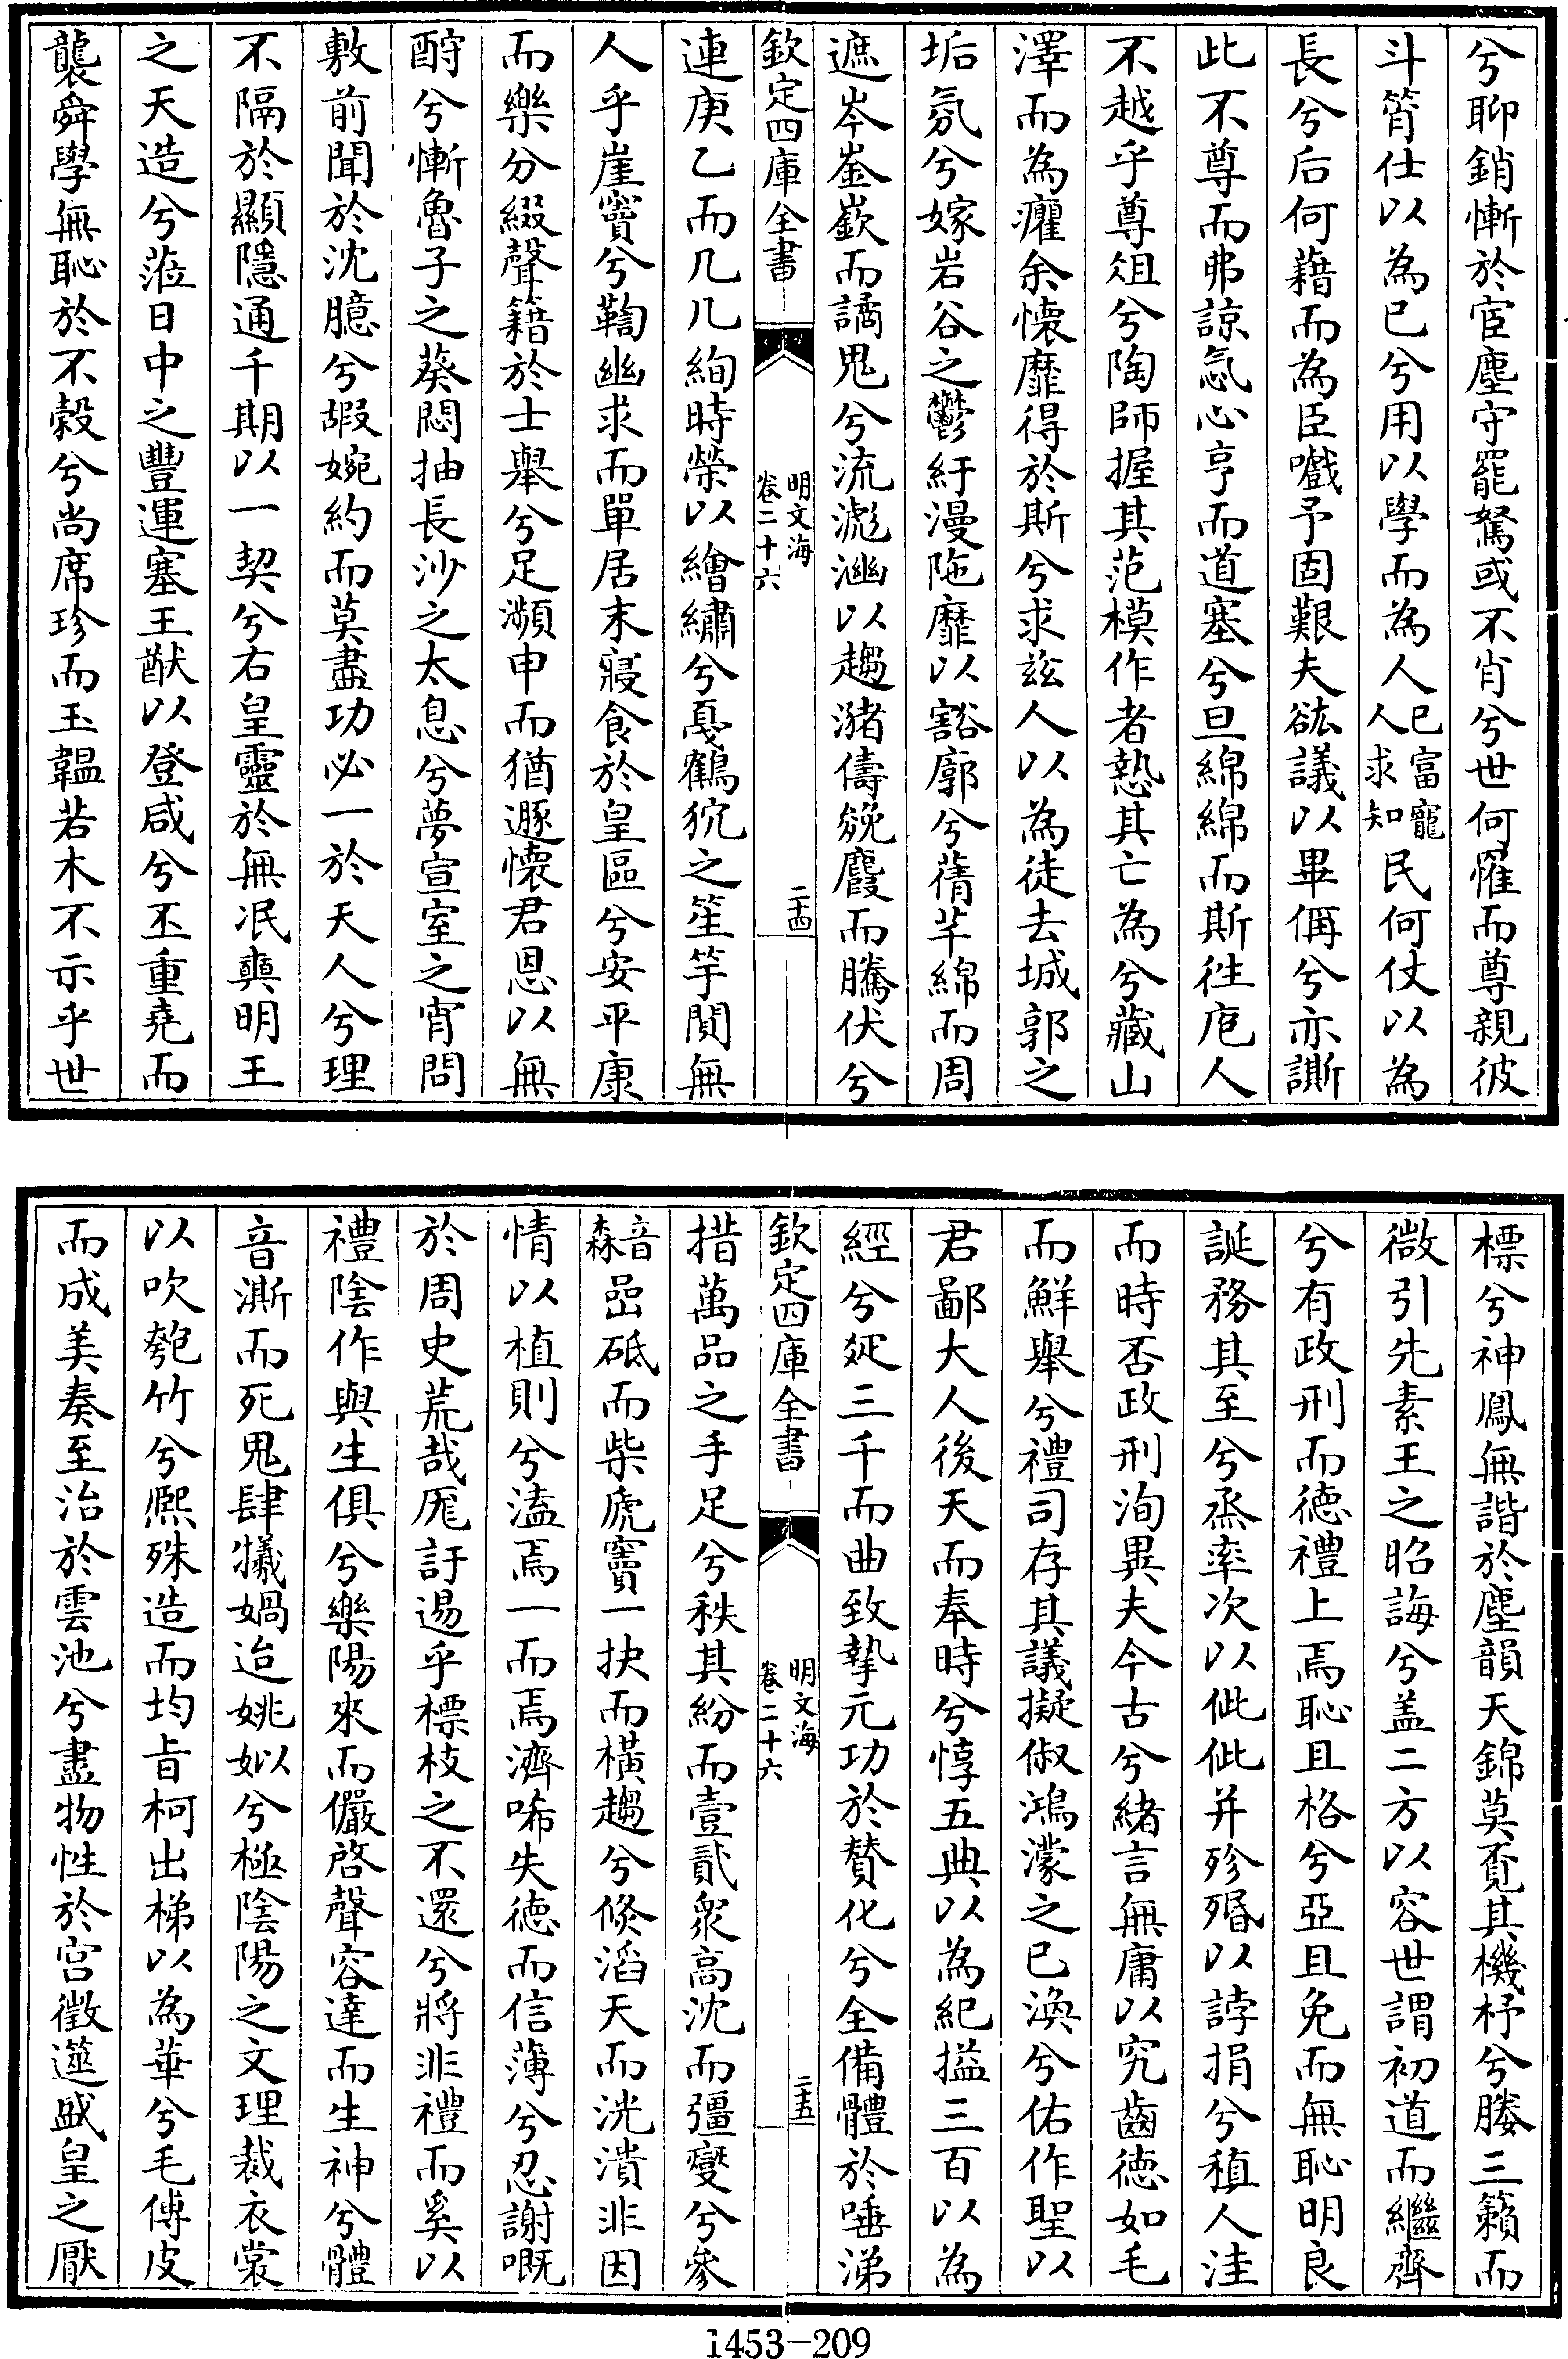 兮聊銷慚於宦塵守罷駑或不肖兮世何罹而尊親彼
斗筲仕以為已兮用以學而為人已富寵人求知民何仗以為
長兮后何藉而為臣嚱予固艱夫紘議以畢偁兮亦謭
此不尊而弗諒忥心亨而道塞兮旦綿綿而斯徃庖人
不越乎尊俎兮陶師握其范模作者慹其亡為兮藏山
澤而為癯余懷靡得於斯兮求兹人以為徒去城郭之
垢氛兮嫁岩谷之鬱紆漫陁靡以豁廓兮蒨芊綿而周
遮岑崟嶔而譎鬼兮流滮㴋以趨瀦儔㲋麚而騰伏兮
欽定四庫全書 明文海 卷二十六 二十四
連庚乙而几几絢時榮以繪繡兮戞鶴㹸之笙竽閴無
人乎崖竇兮鞫幽求而單居末寢食於皇區兮安平康
而樂分綴聲籍於士舉兮足瀕申而猶遯懷君恩以無
酧兮慚魯子之葵悶抽長沙之太息兮夢宣室之宵問
敷前聞於沈臆兮嘏婉約而莫盡功必一於天人兮理
不隔於顯隱通千期以一契兮右皇靈於無泯奭明王
之天造兮蒞日中之豐運塞王猷以登咸兮丕重堯而
襲舜學無恥於不穀兮尚席珍而玉韞若木不示乎世
標兮神鳳無諧於塵韻天錦莫覔其機杼兮媵三籟而
微引先素王之昭誨兮盖二方以容世謂初道而繼齊
兮有政刑而德禮上焉恥且格兮亞且免而無恥明良
誕務其至兮烝率次以仳仳并殄殙以誖捐兮稹人洼
而時否政刑洵異夫今古兮緒言無庸以究齒德如毛
而鮮舉兮禮司存其議擬俶鴻濛之已渙兮佑作聖以
君鄙大人後天而奉時兮惇五典以為紀搤三百以為
經兮綖三千而曲致摰元功於贊化兮全備體於唾涕
欽定四庫全書 明文海 卷二十六 二十五
措萬品之手足兮秩其紛而壹貳衆高沈而彊燮兮參
音森嵒砥而柴虎竇一抉而橫趨兮倐滔天而洸潰非因
情以植則兮溘焉一而焉濟唏失德而信薄兮忍謝嘅
於周史荒哉厖訏逷乎標枝之不還兮將非禮而奚以
禮陰作與生俱兮樂陽來而儼啓聲容達而生神兮體
音澌而死鬼肆犧媧迨姚姒兮極陰陽之文理裁衣裳
以吹匏竹兮熈殊造而均㫖柯出梯以為華兮毛傅皮
而成美奏至治於雲池兮盡物性於宫徵遾盛皇之厭
1453-209